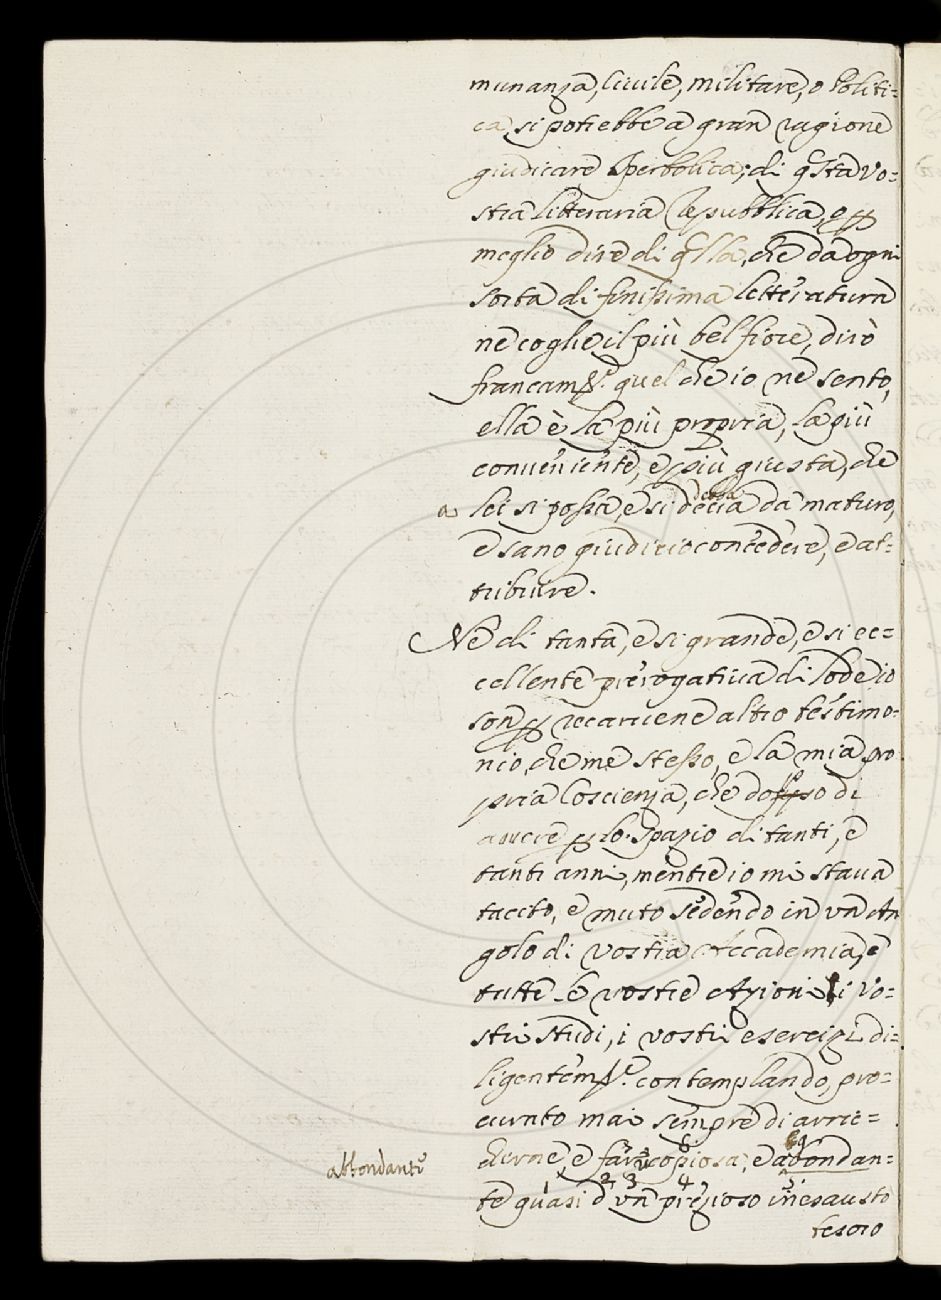 munanza, Ciuile, militare, o Politi=
ca, si potrebbe a gran ragione
giudicare Iperbolica; di qsta Vo=
stra litteraria Republica, o p
meglio dire di qlla, che da ogni
sorta di finissima letteratura
ne coglie il più bel fiore, dirò
francamte. quel che io ne sento,
ella è la più propria, la più
conueniente, e più giusta, che
a lei si possa, e si debba da maturo,
e sano giuditio concedere, e at=
tribuire.
Nè di tanta, e si grande, e si ec=
cellente prerogatiua di lode io
son p recaruene altro testimo=
nio, che me stesso, e la mia pro
pria Coscienza, che doppo di
auere p lo spazio di tanti, e
tanti anni, mentre io mi staua
tacito, e muto sedendo in vn An
golo di vostra Accademia, e
tutte le vostre Azioni, i Vo=
stri studi, i vostri esercizi di=
ligentemte. contemplando, pro=
curato mai sempre di arric=
chirne, e far copiosa, e abondan=
abbondante
te quasi d'vn prezioso inesausto
tesoro